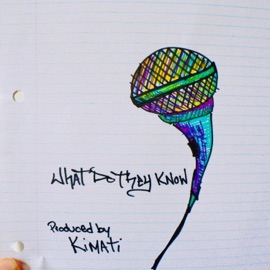 WHAT DO THEY KNOW
Produced by
KiMATi